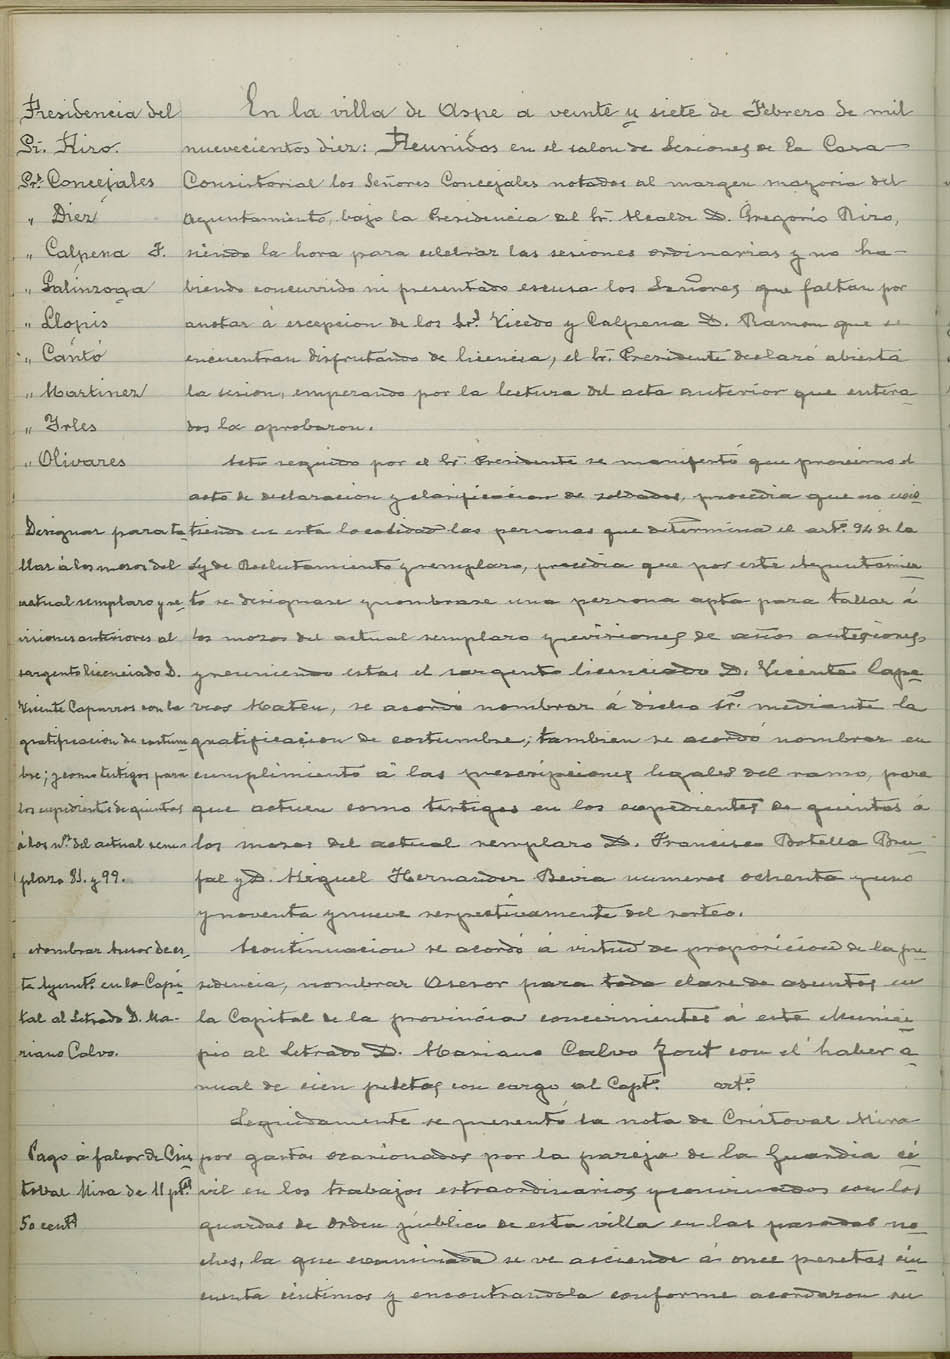 Presidencia del
Sr. Rizo.
Srs. Concejales
" Diez
" Calpena F.
" Galinzoga
" Llopis
" Cantó
" Martinez
" Yrles
" Olivares
En la villa de Aspe a veinte y siete de Febrero de mil
nuevecientos diez: Reunidos en el salon de Sesiones de la Casa
Consistorial los Señores Concejales notados al margen mayoria del
Ayuntamiento, bajo la Presidencia del Sr. Alcalde D. Gregorio Rizo,
siendo la hora para celebrar las sesiones ordinarias y no ha-
biendo concurrido ni presentado escusa los Señores que faltan por
anotar á escepcion de los Srs. Vicedo y Calpena D. Ramon que se
encuentran disfrutando de licencia, el Sr. Presidente declaró abierta
la sesion, empezando por la lectura del acta anterior que entera-
dos la aprobaron.
Acto seguido por el Sr. Presidente se manifestó que proximo el
acto de declaracion y clasificacion de soldados, procedia que no exis-
Designar para ta-
llar á los mozos del
actual remplazo y re-
visiones anteriores al
sargento licenciado D.
Vicente Caparros con la
gratificacion de costum-
bre; y como testigos para
los expedientes de quintas
á los nos. del actual rem-
plazo 81. y 99.
tiendo en esta localidad las personas que determina el arto. 94 de la
Ley de Reclutamiento y remplazo, procedia que por este Ayuntamien-
to se designase y nombrase una persona apta para tallar á
los mozos del actual remplazo y revisiones de años anteriores
y reuniendo estas el sargento licenciado D. Vicente Capa-
rros Mateu, se acordó nombrar á dicho Sr. mediante la
gratificacion de costumbre; tambien se acordó nombrar en
cumplimiento á las prescripciones legales del ramo, para
que actuen como testigos en los expedientes de quintas á
los mozos del actual remplazo D. Francisco Botella Bru-
fal y D. Miguel Hernandez Bevia numeros ochenta y uno
y noventa y nueve respectivamente del sorteo.
Nombrar Asesor de es-
te Ayunto. en la Capi-
tal al Letrado D. Ma-
riano Calvo.
Acontinuacion se acordó á virtud de proposicion de la pre-
sidencia, nombrar Asesor para toda clase de asuntos en
la Capital de la provincia concernientes á este Munici-
pio al Letrado D. Mariano Calvo Jout con el haber a-
nual de cien pesetas con cargo al Capto. arto.
Seguidamente se presentó la nota de Cristoval Mira
Pago á favor de Cris-
toval Mira de 11 pts.
50 cents.
por gastos ocasionados por la pareja de la Guardia ci-
vil en los trabajos estraordinarios y convinados con los
guardas de orden público de esta villa en las pasadas no-
ches, la que examinada se ve asciende á once pesetas cin-
cuenta céntimos y encontrandola conforme acordaron su